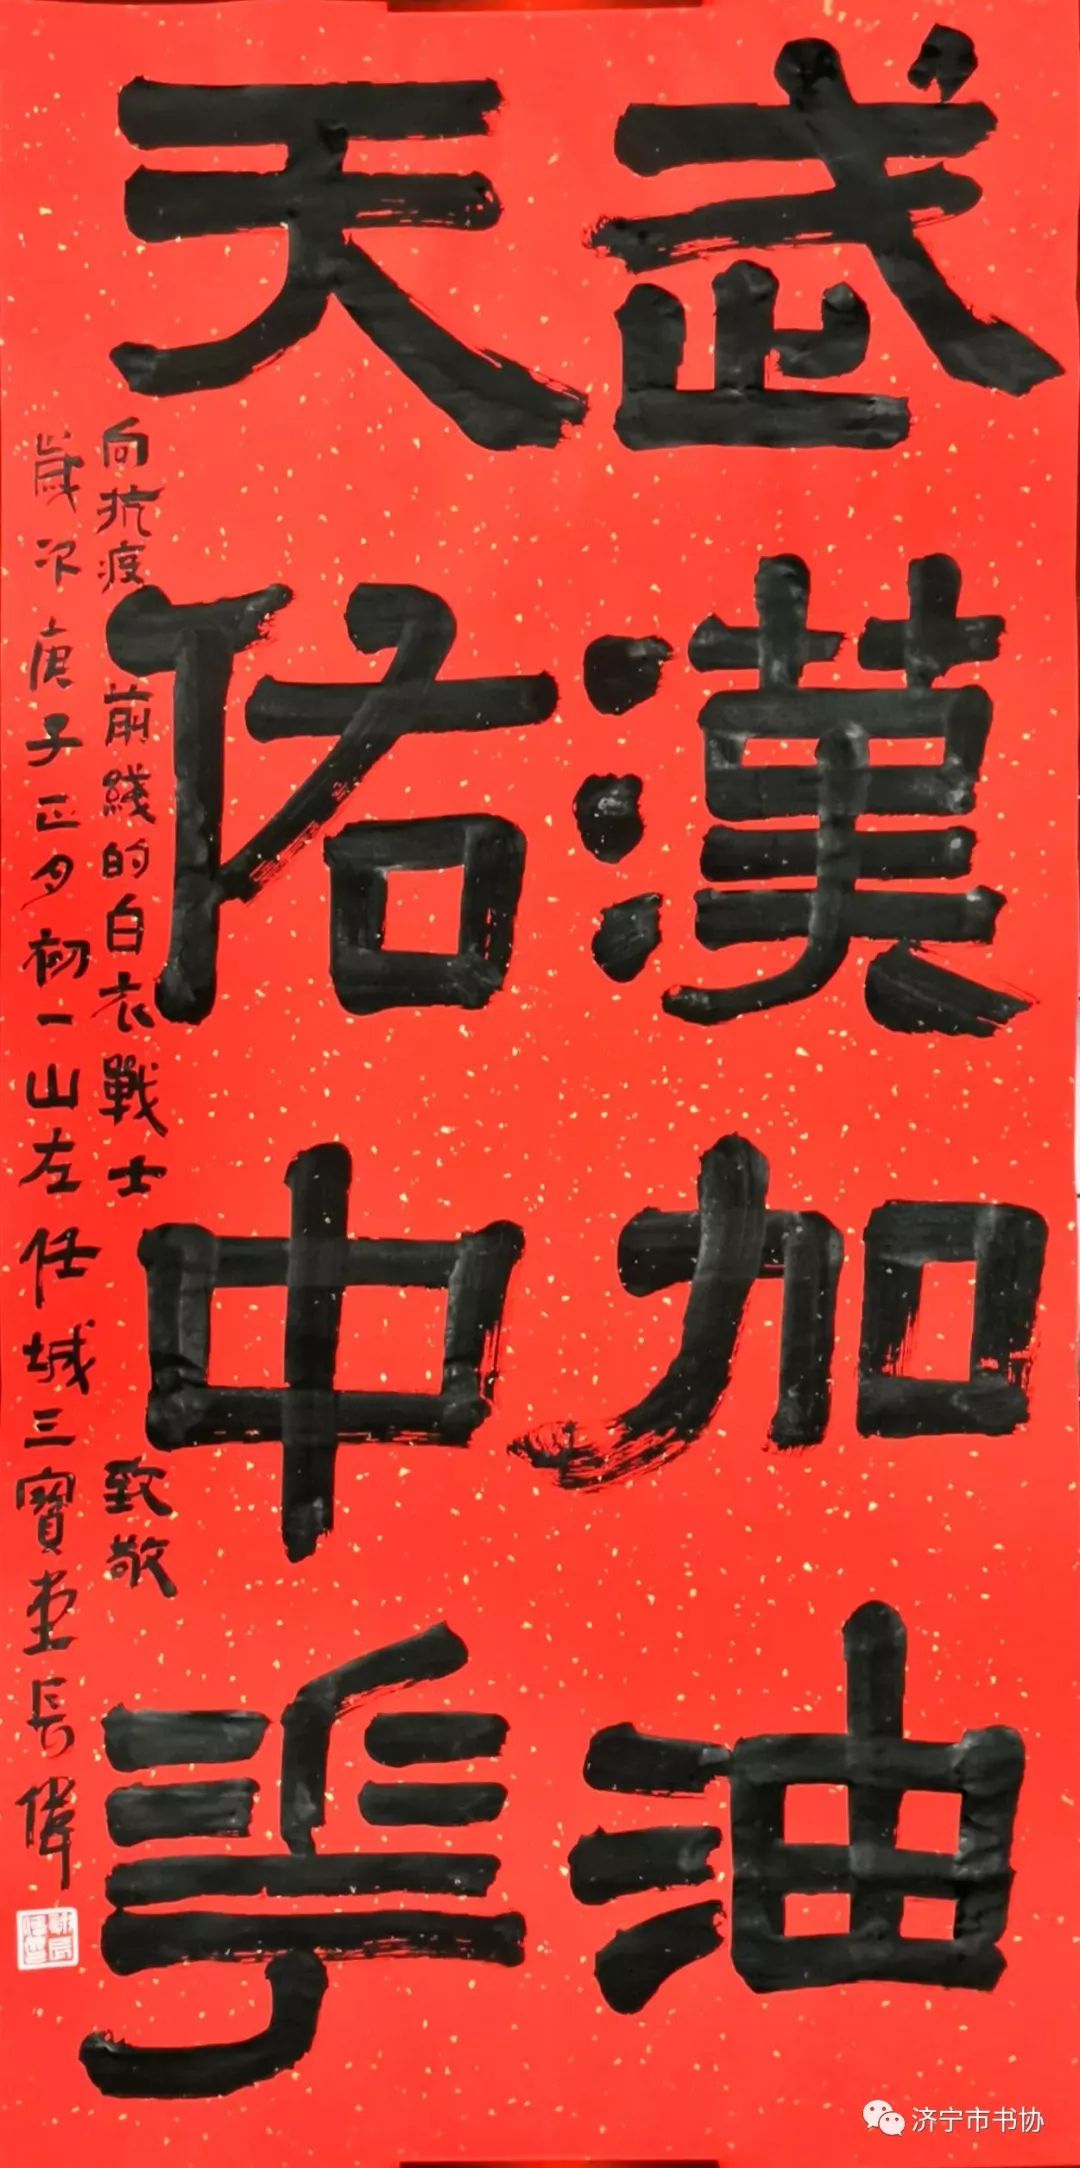 武漢加油
天佑中華
向抗疫前綫的白衣戰士致敬
歲次庚子正月初一山左任城三寶堂長偉
济宁市书协